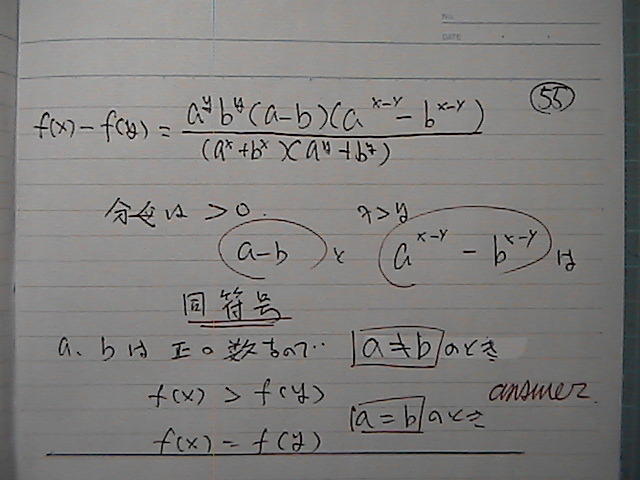 No.
DATE
55
f(x) - f(y) = a^y b^y (a-b)(a^{x-y} - b^{x-y}) / (a^x + b^x)(a^y + b^y)
分母は > 0. x > y
a-b と a^{x-y} - b^{x-y} は
同符号
a、bは正の数なので… a ≠ b のとき
f(x) > f(y) answer.
a = b のとき
f(x) = f(y)